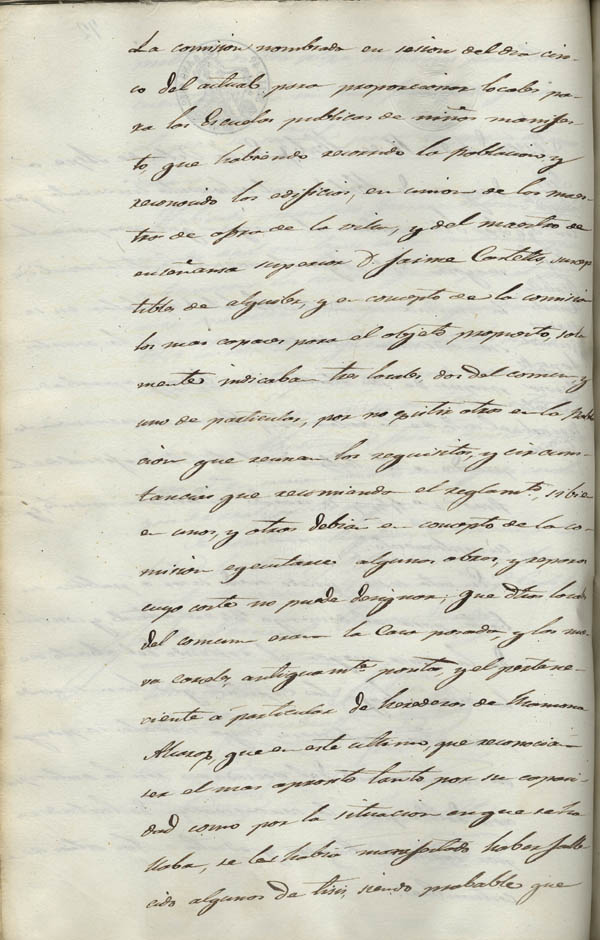 La comision nombrada en sesion del dia cin-
co del actual para proporcionar locales pa-
ra las Escuelas publicas de niños manifes-
tó, que habiendo recorrido la Poblacion y
reconocido los edificios, en union de los maes-
tros de obra de la villa, y del maestro de
enseñansa superior D. Jaime suscep
tibles de alquiler, y en concepto de la comision
los mas capaces para el objeto propuesto, sola
mente indicaban tres locales, dos del comun, y
uno de particular, por no existir otros en la Pobla
cion que reunan los requisitos, y circuns-
tancias que recomienda el reglamto, si bien
en unos, y otros debian en concepto de la co-
mision egecutarse algunas obras, y reparos
cuyo coste no puede designar; que dhos locales
del comun eran la Casa posada, y la nue
va carcel, antiguamte y el pertene-
ciente á particular de herederos de Ramona
que en este ultimo, que reconocian
ser el mas apronto tanto por su capaci-
dad como por la situacion en que se ha
llaba, se les habia manifestado haber falle-
cido algunos de tisis, siendo probable que